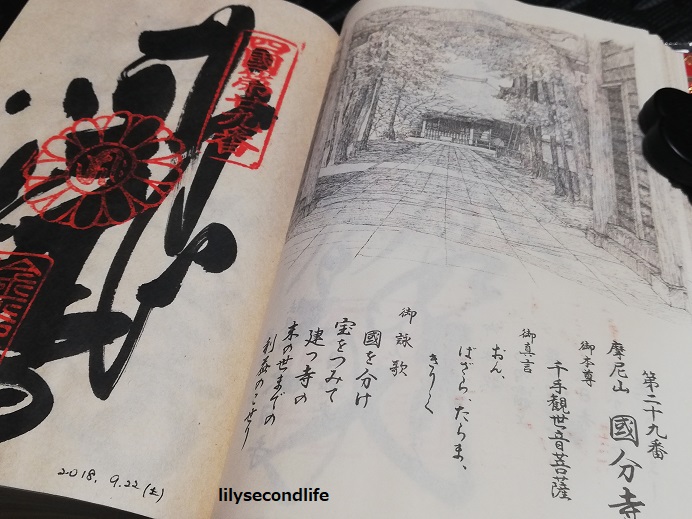 第二十九番
摩尼山 國分寺
御本尊
千手観世音菩薩
御真言
おん、
ばざら、たらま、
きりく
御詠歌
國を分け
宝をつみて
建つ寺の
末の世までの
利益のこせり
四國第廿九番
2018. 9.22(土)
lilysecondlife